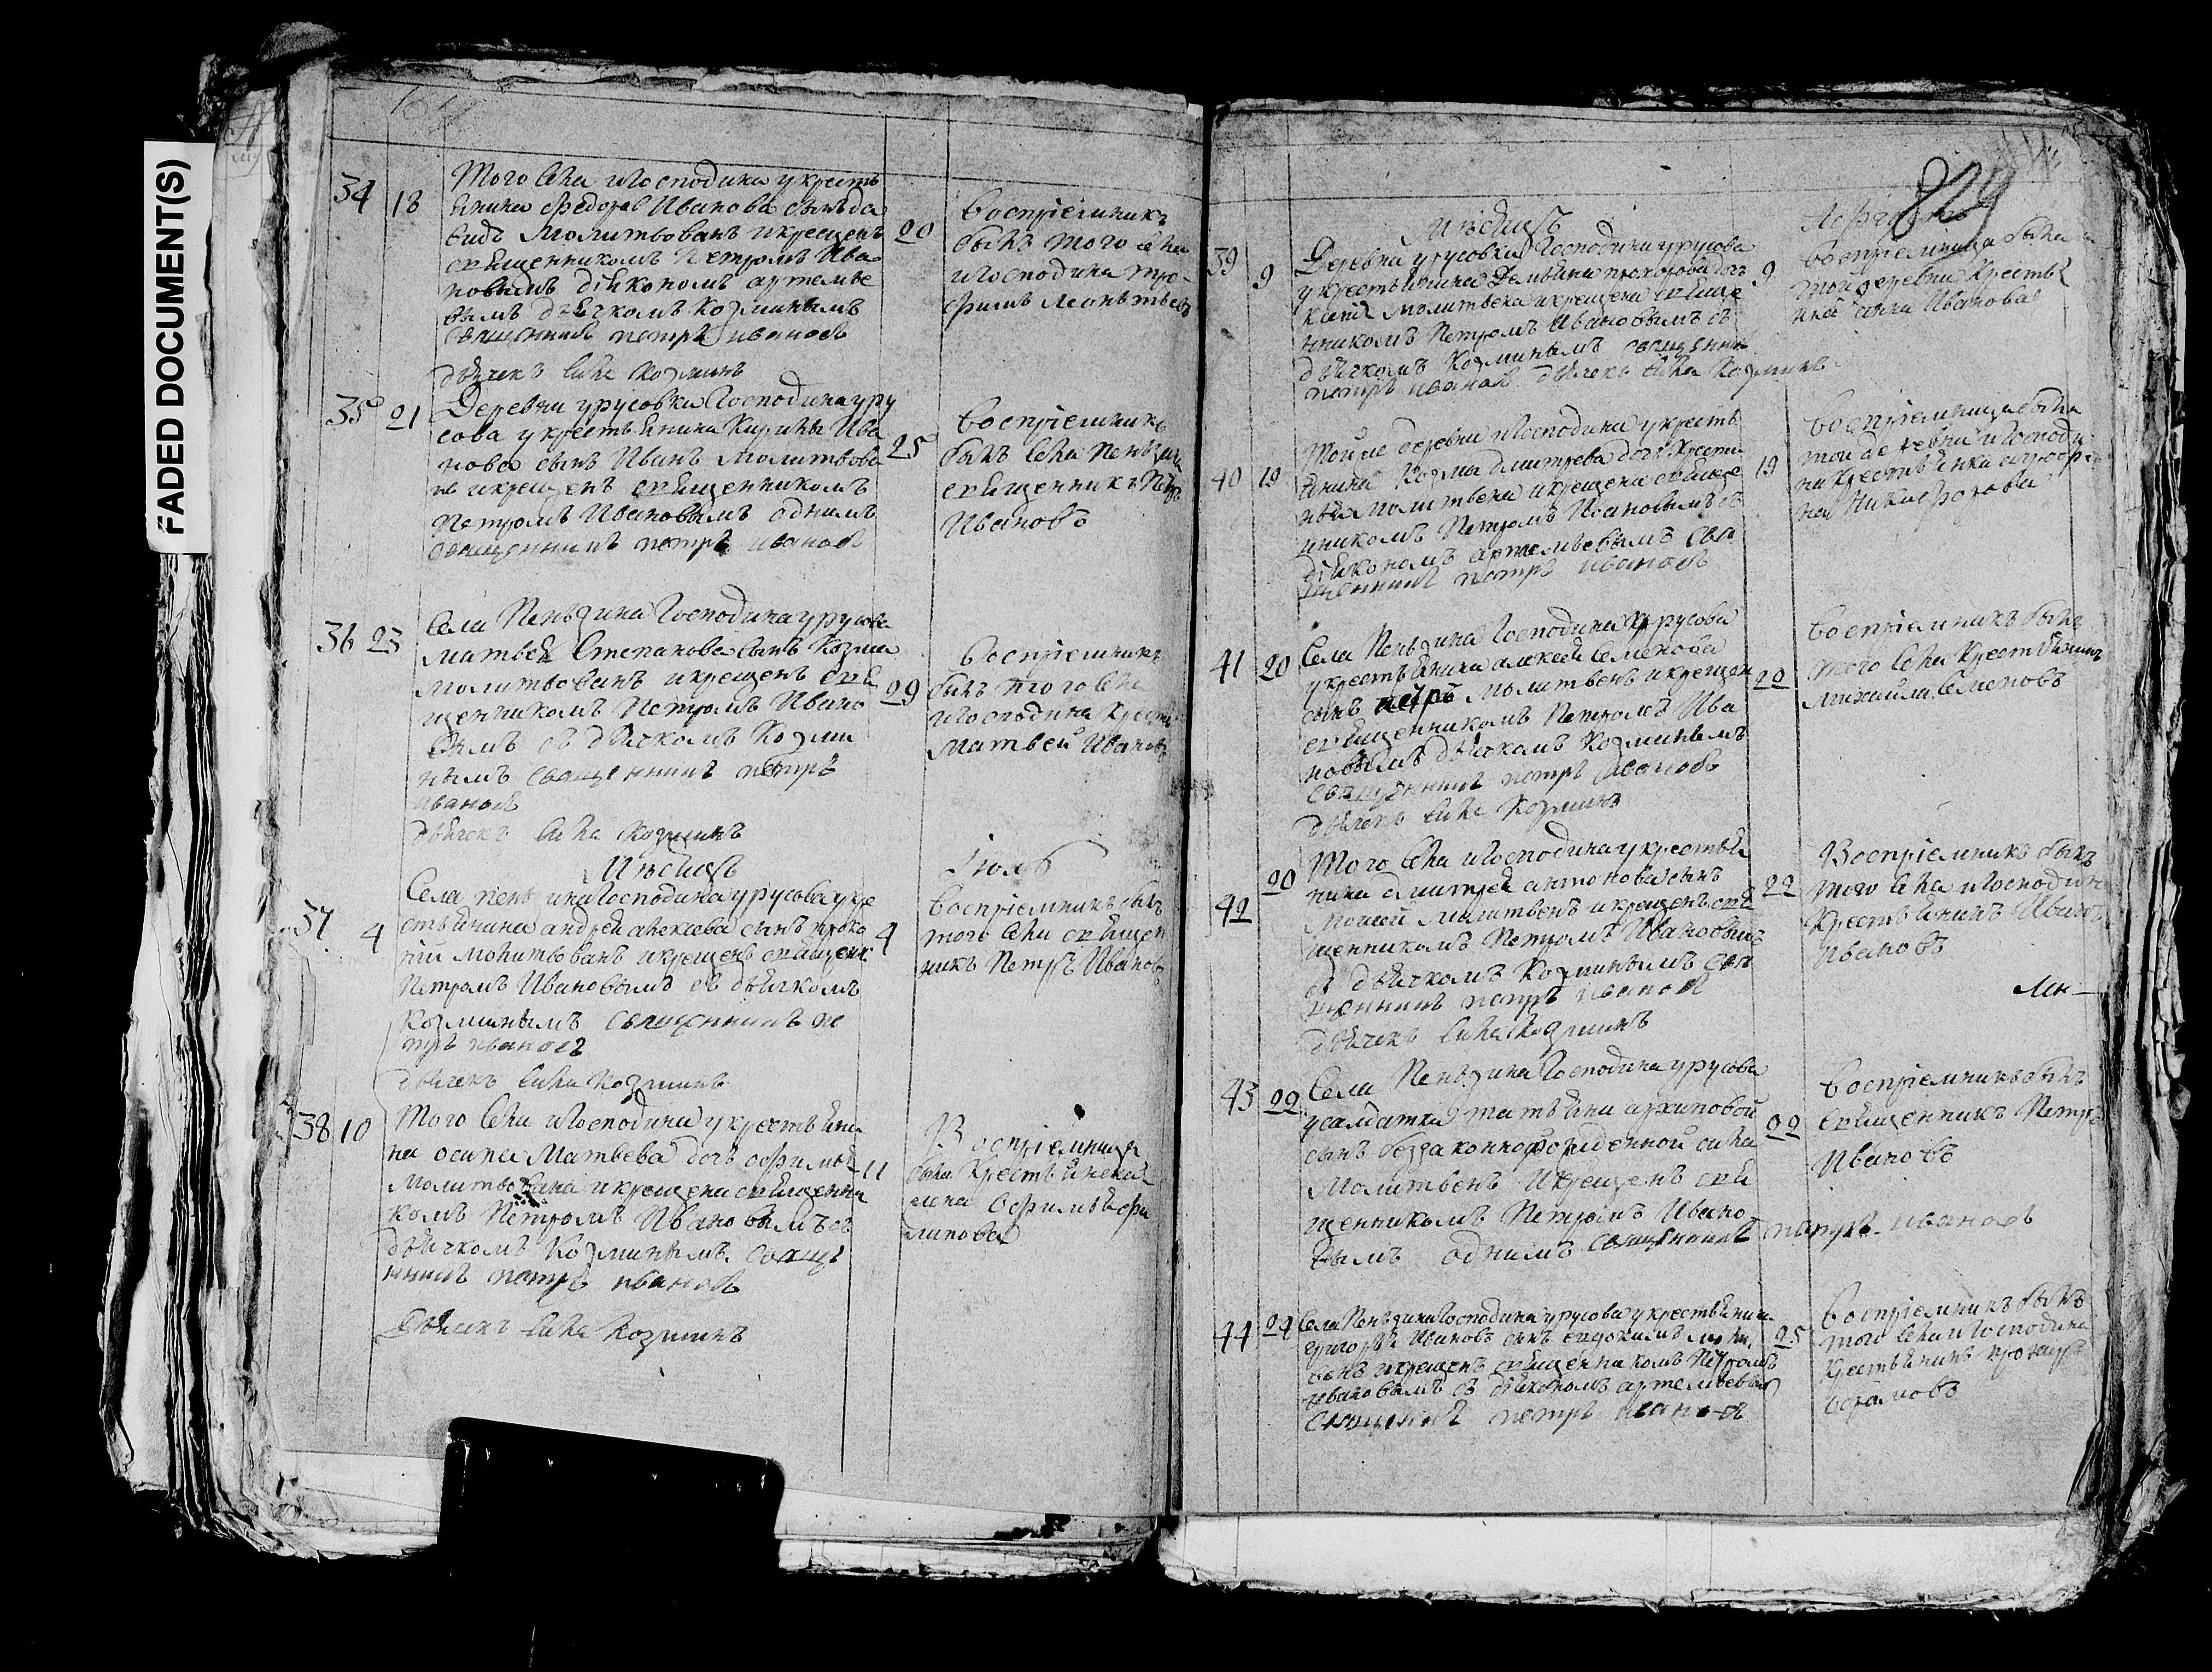 FADED DOCUMENT(S)
34
18
Того села и господина у кресть
янина Федора Иванова сынъ да
видъ молитвованъ и крещенъ
священникомъ Петромъ Ива
новымъ дьякономъ артемье
вымъ дьячкомъ Козминымъ
священникъ петръ ивановъ
дьячекъ сила козминъ
20
воспрiемникъ
былъ того села
и господина тро
фимъ леонтьевъ
35
21
Деревни урусовки господина уру
сова у крестьянина Кирилы Ива
нова сынъ Иванъ молитвова
нъ и крещенъ священникомъ
Петромъ Ивановымъ однимъ
священникъ петръ ивановъ
25
воспрiемникъ
былъ села Пензина
священникъ Петръ
Ивановъ
36
23
Села Пензина господина урусова
матвея Степанова сынъ Козма
молитвованъ и крещенъ свя
щенникомъ Петромъ Ивано
вымъ съ дьячкомъ Козми
нымъ священникъ петръ
ивановъ
дьячекъ сила козминъ
29
воспрiемникъ
былъ того села
и господина крест
матвей Ивановъ
Мѣсяцъ
Iюль
37
4
Села пензина господина урусова у кре
стьянина андрея алексева сынъ проко
пiй молитвованъ и крещенъ священ
Петромъ Ивановымъ съ дьячкомъ
Козминымъ священникъ пе
тръ ивановъ
дьячекъ сила козминъ
4
воспрiемникъ былъ
того села священ
никъ Петръ Ивановъ
38
10
Того села и господина у крестьяни
на осипа Матвева дочь
молитвована и крещена священни
комъ Петромъ Ивановымъ съ
дьячкомъ Козминымъ свяще
нникъ петръ ивановъ
Дьячекъ сила козминъ
11
Воспрiемница
была крестьянская
жена Офимья фи
липова
829
Мѣсяцъ
39
9
Деревни урусовки господина урусова
у крестьянина Дементия прохорова доч
молитвена и крещена свяще
нникомъ Петромъ Ивановымъ съ
дьячкомъ Козминымъ священни
петръ ивановъ дьячекъ сила Козминъ
9
воспрiемница была
той деревни крестья
нка анна Иванова
40
19
Той же деревни и господина у кресть
янина Козмы дмитрева дочь
молитвена и крещена свяще
нникомъ Петромъ Ивановымъ съ
дьякономъ артемьевымъ свя
щенникъ петръ ивановъ
19
воспрiемница была
той деревни и господи
на крестьянка
Никифорова
41
20
Села Пензина господина урусова
у крестьянина алексея семенова
сынъ петръ молитвенъ и крещенъ
священникомъ Петромъ Ива
новымъ дьячкомъ Козминымъ
священникъ петръ ивановъ
дьячекъ сила козминъ
20
воспрiемникъ былъ
того села крестьянинъ
михайла семеновъ
42
20
Того села и господина у крестья
нина дмитрея антонова сынъ
молитвенъ и крещенъ свя
щенникомъ Петромъ Ивановымъ
съ дьячкомъ Козминымъ свя
щенникъ петръ ивановъ
дьячекъ сила козминъ
22
Воспрiемникъ былъ
того села и господина
крестьянинъ Иванъ
Ивановъ
43
22
Села Пензина господина урусова
у салдатки татьяны архиповой
сынъ беззаконнорожденной сила
Молитвенъ и крещенъ свя
щенникомъ Петромъ Ивано
вымъ однимъ священникъ петръ ивановъ
22
воспрiемникъ былъ
священникъ Петръ
Ивановъ
44
24
Села Пензина господина урусова у крестьянина
григорья Иванова сынъ евдокимъ молит
венъ и крещенъ священникомъ Петромъ
ивановымъ съ дьякономъ артемьевымъ
священникъ петръ ивановъ
25
воспрiемникъ былъ
того села и господина
крестьянинъ